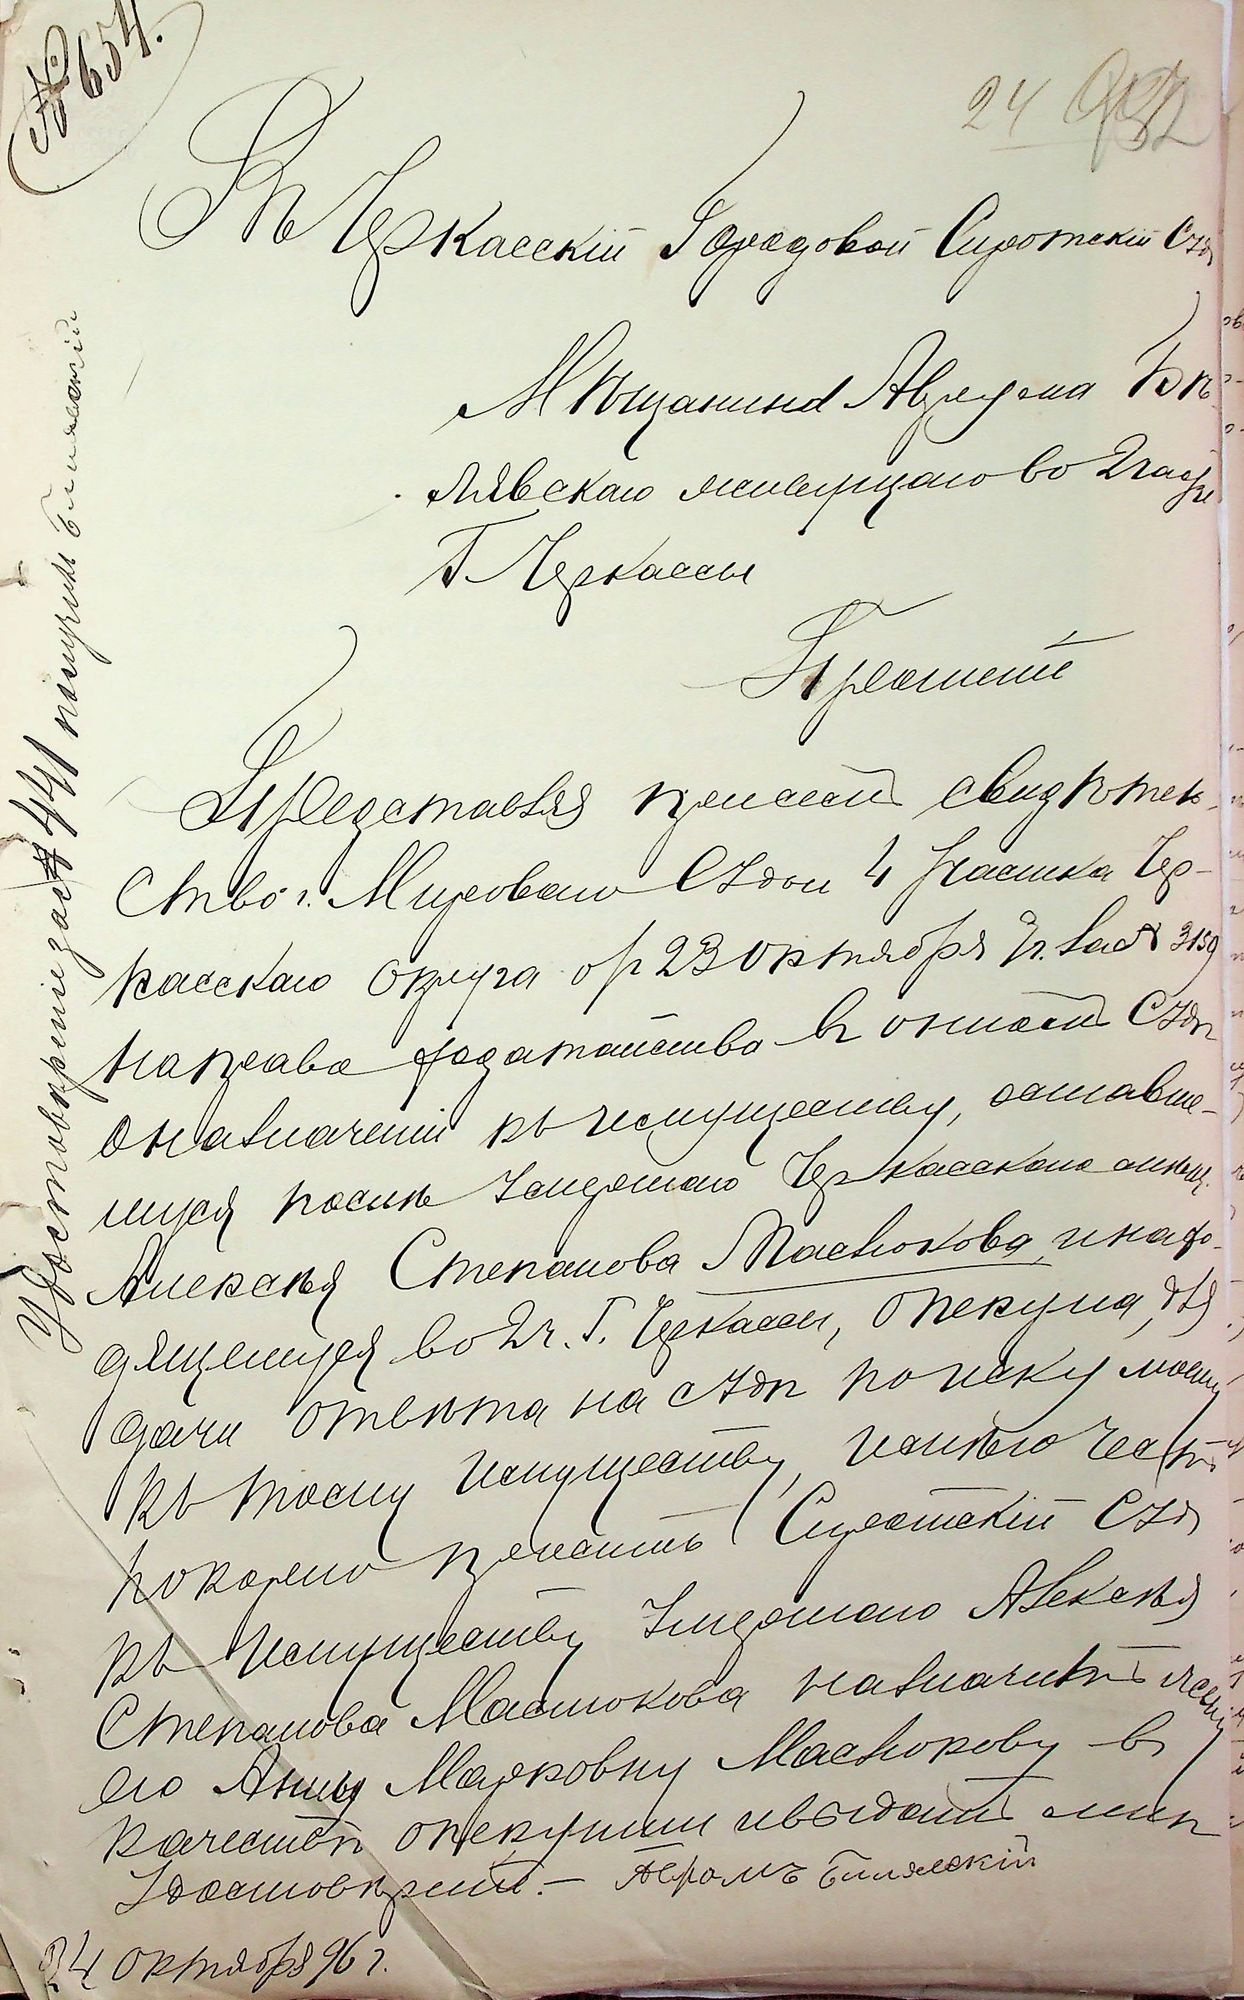 № 654.
24
Въ Черкасскій Городовой Сиротскій Судъ
Мѣщанина Аврума Бѣ-
лявскаго живущаго во 2 части
Г. Черкассы
Прошеніе
Представляя при семъ свидѣтель-
ство г. Мироваго Судьи 4 участка Чер-
касскаго округа от 23 октября за № 3159
на право ходатайства въ ономъ Судѣ
о назначеніи къ имуществу, оставше-
муся послѣ умершаго Черкасскаго мѣщ.
Алексѣя Степанова Маслюкова, и нахо-
дящемуся во 2 ч. Г. Черкассы, опекуна, для
дачи отвѣта на судѣ по иску моему
къ тому имуществу, имѣю честь
покорно просить Сиротскій Судъ
къ имуществу умершаго Алексѣя
Степанова Маслюкова назначить жену
его Анну Марковну Маслюкову въ
качествѣ опекунши и выдать мнѣ
удостовѣреніе. — Авромъ Билявскій
24 октября 96 г.
Удостовѣреніе за № 441 получилъ Билявскій